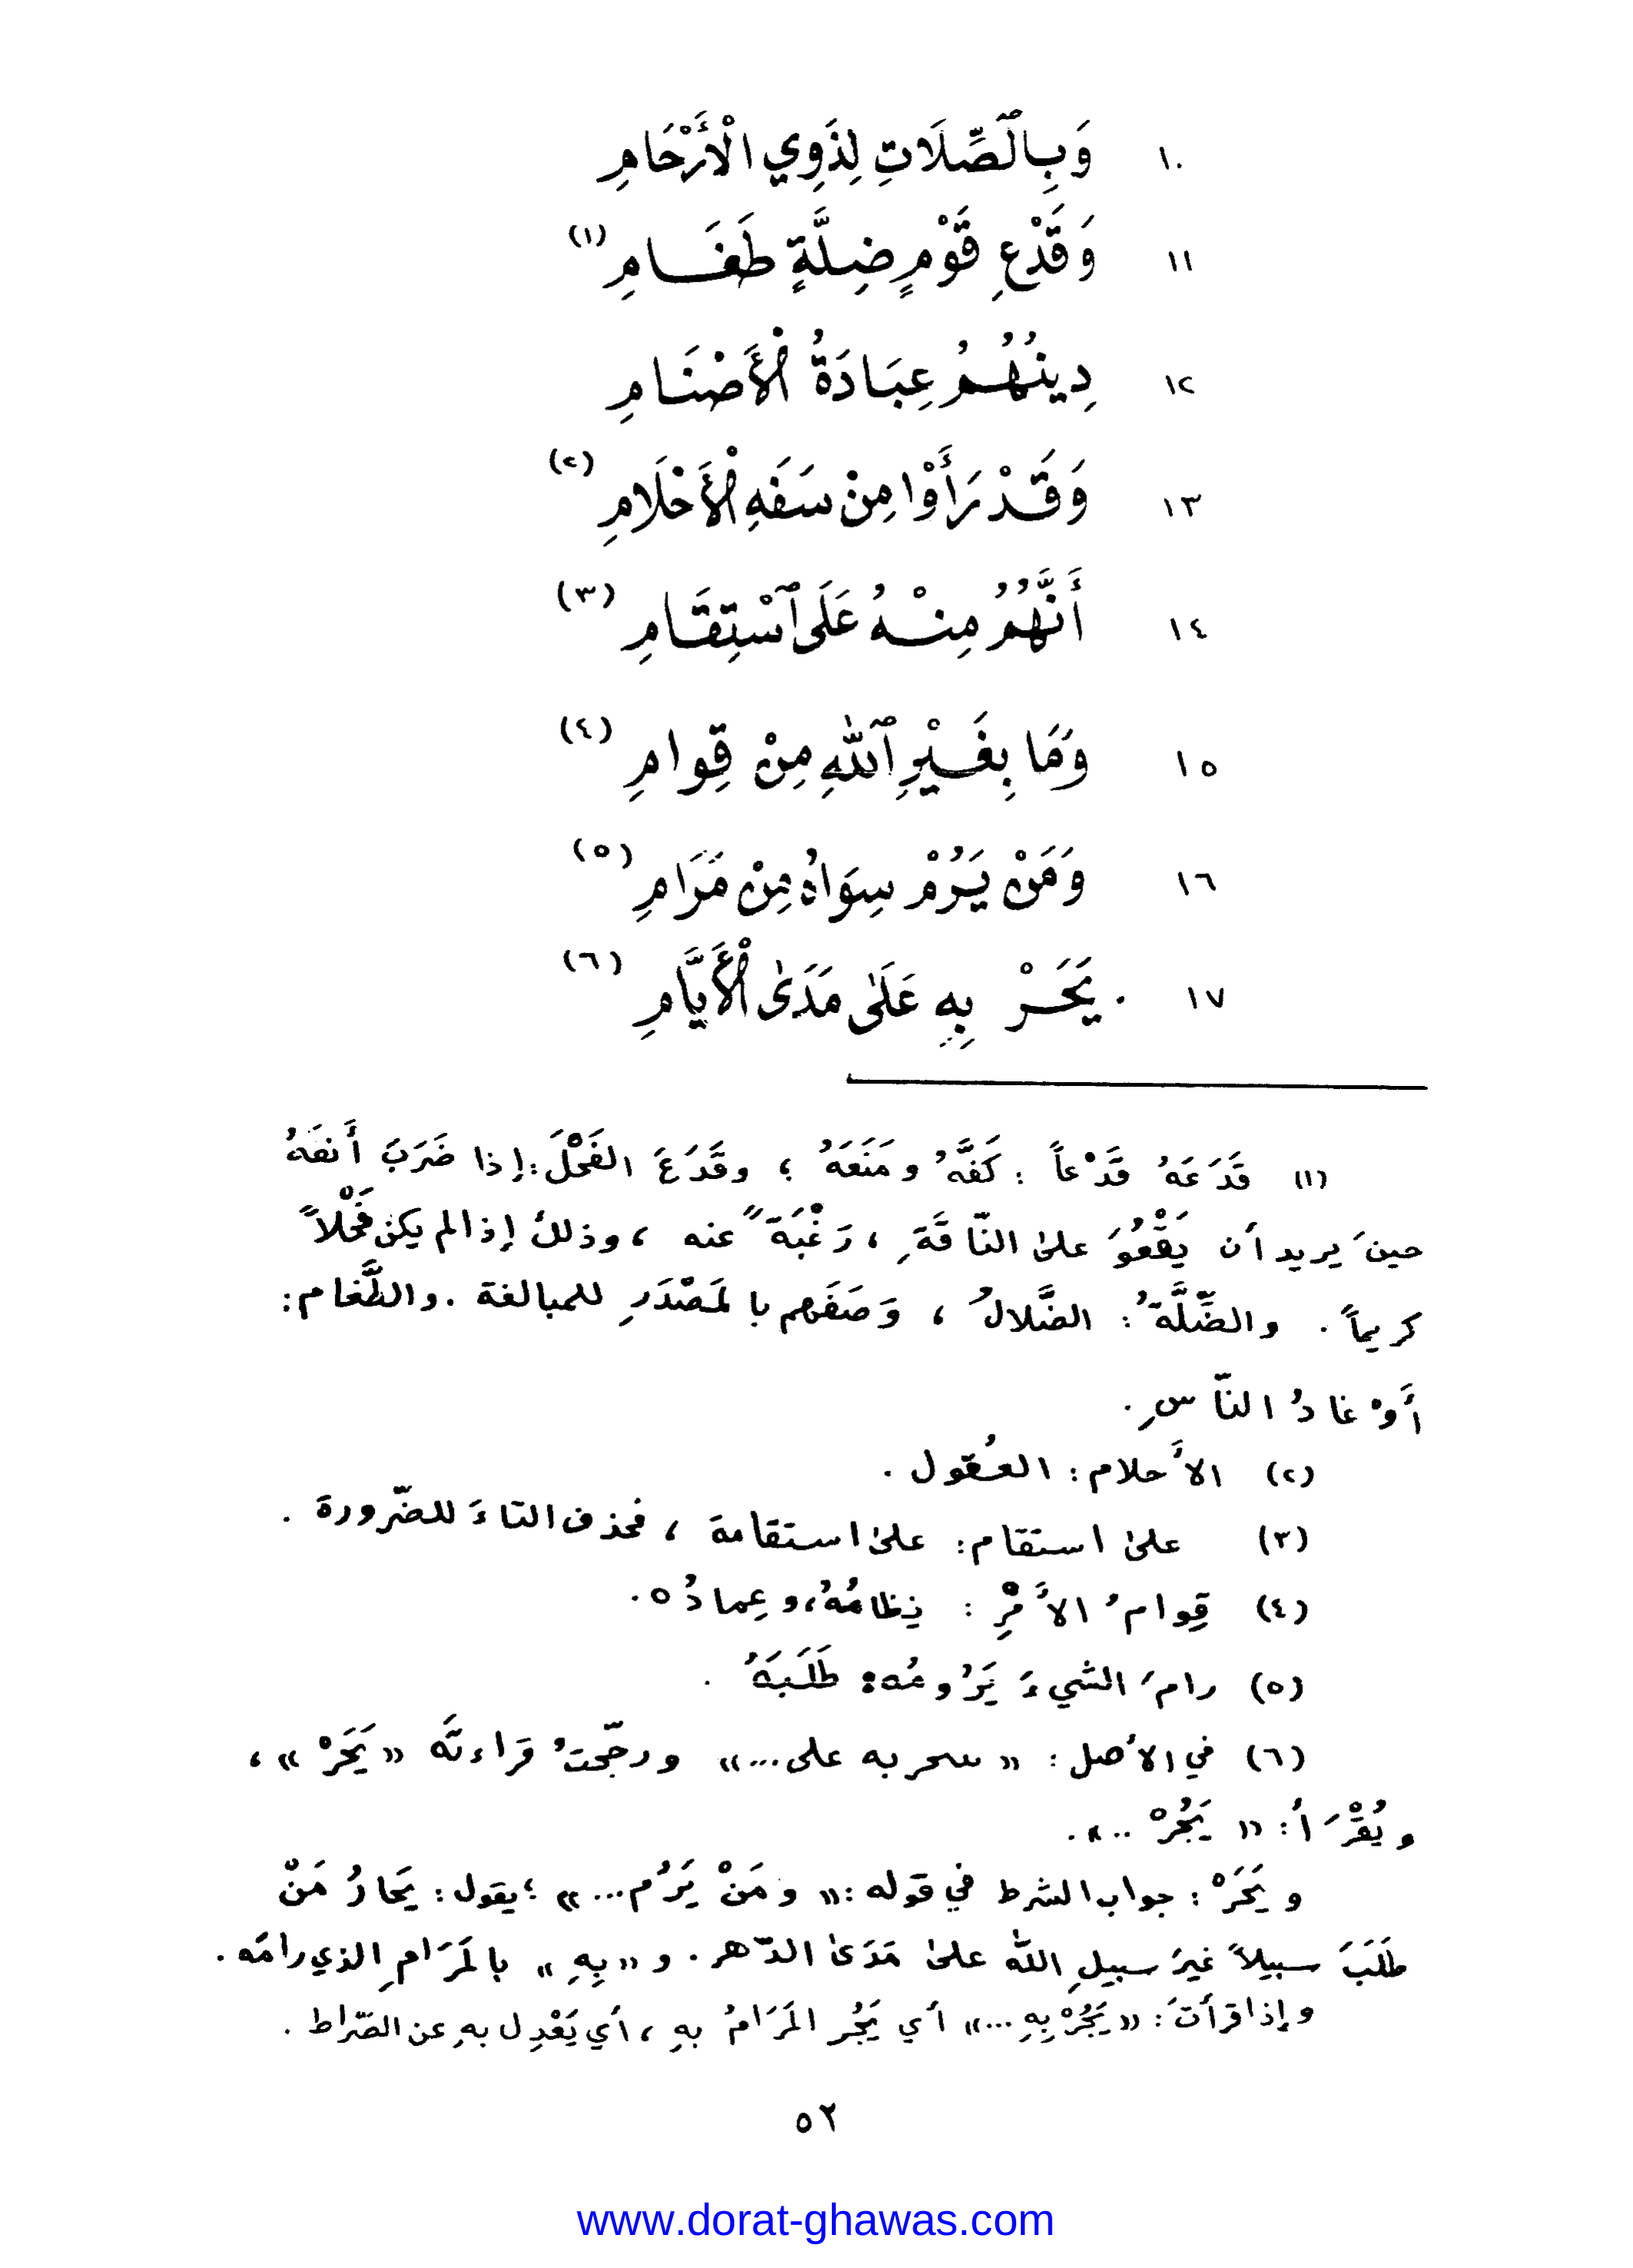 ١٠ وَبِٱلصِّلَاتِ لِذَوِي الْأَرْحَامِ
١١ وَقَدْعِ قَوْمٍ ضِلَّةٍ طَغَامِ (١)
١٢ دِينُهُمُ عِبَادَةُ الْأَصْنَامِ
١٣ وَقَدْ رَأَوْا مِنْ سَفَهِ الْأَحْلَامِ (٢)
١٤ أَنَّهُمُ مِنْهُ عَلَى ٱسْتِقَامِ (٣)
١٥ وَمَا بِغَيْرِ ٱللهِ مِنْ قِوامِ (٤)
١٦ وَمَنْ يَرُمْ سِوَاهُ مِنْ مَرَامِ (٥)
١٧ . يَحَرْ بِهِ عَلَىٰ مَدَىٰ الْأَيَّامِ (٦)
(١) قَدَعَهُ قَدْعاً : كَفَّهُ ومَنَعَهُ ؛ وقَدَعَ الفَحْلَ : إذا ضَرَبَ أَنفَهُ
حينَ يريد أن يَقْعُوَ علىٰ النّاقَةِ ، رَغْبَةً عنه ، وذلك إذا لم يكن فَحْلاً
كريماً . والضِّلَّةُ : الضَّلالُ ، وَصَفَهم بالمَصْدَرِ للمبالغة . والطَّغام :
أَوْغادُ النّاسِ .
(٢) الأَحلام : العُقول .
(٣) علىٰ استقام : علىٰ استقامة ، فحذف التاءَ للضّرورة .
(٤) قِوامُ الأَمْرِ : نِظامُهُ ، وعِمادُه .
(٥) رامَ الشيءَ يَرُومُه : طَلَبَهُ .
(٦) في الأصل : « سحر به على ... » ورجّحتُ قراءتَه « يَحَرْ » ،
ويُقْرَأ : « يَجُرْ .. » .
ويَحَرْ : جواب الشرط في قوله : « ومَنْ يَرُم ... » ؛ يقول : يَحارُ مَنْ
طَلَبَ سبيلاً غيرَ سبيلِ اللّٰه علىٰ مَدَىٰ الدّهر . و « بِهِ » بالمَرَامِ الذي رامَه .
وإذا قرأتَ : « يَجُرْ بِهِ ... » أي يَجُر المَرَامُ بهِ ، أي يَعْدِل بهِ عن الصّراط .
٥٢
www.dorat-ghawas.com